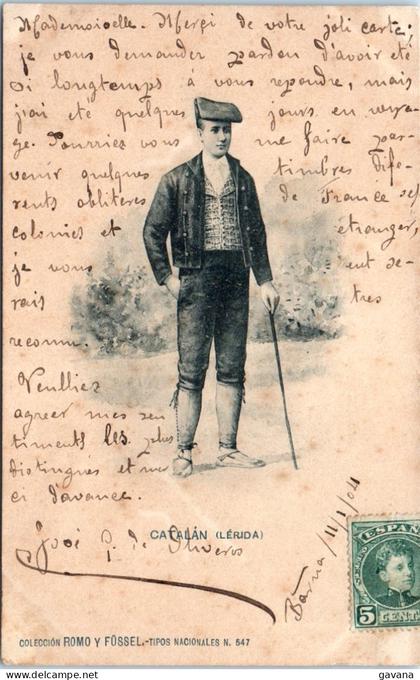 Mademoiselle. Merçi de votre joli carte;
je vous demander pardon d'avoir eté
si longtemps à vous repondre, mais
j'ai eté quelques jours en voya-
ge. Pourriez vous me faire par-
venir quelques timbres dife-
rents obliteres de France ses
colonies et étranger,
je vous en se-
rais tres
reconn.
Veulliez
agreer mes sen
timents les plus
distingués et mer
ci d'avance.
CATALÁN (LÉRIDA)
José G. de Oliveros
Barna/11/1/04
CORREOS
ESPAÑA
5 CENT
COLECCIÓN ROMO Y FÜSSEL.-TIPOS NACIONALES N. 547
gavana